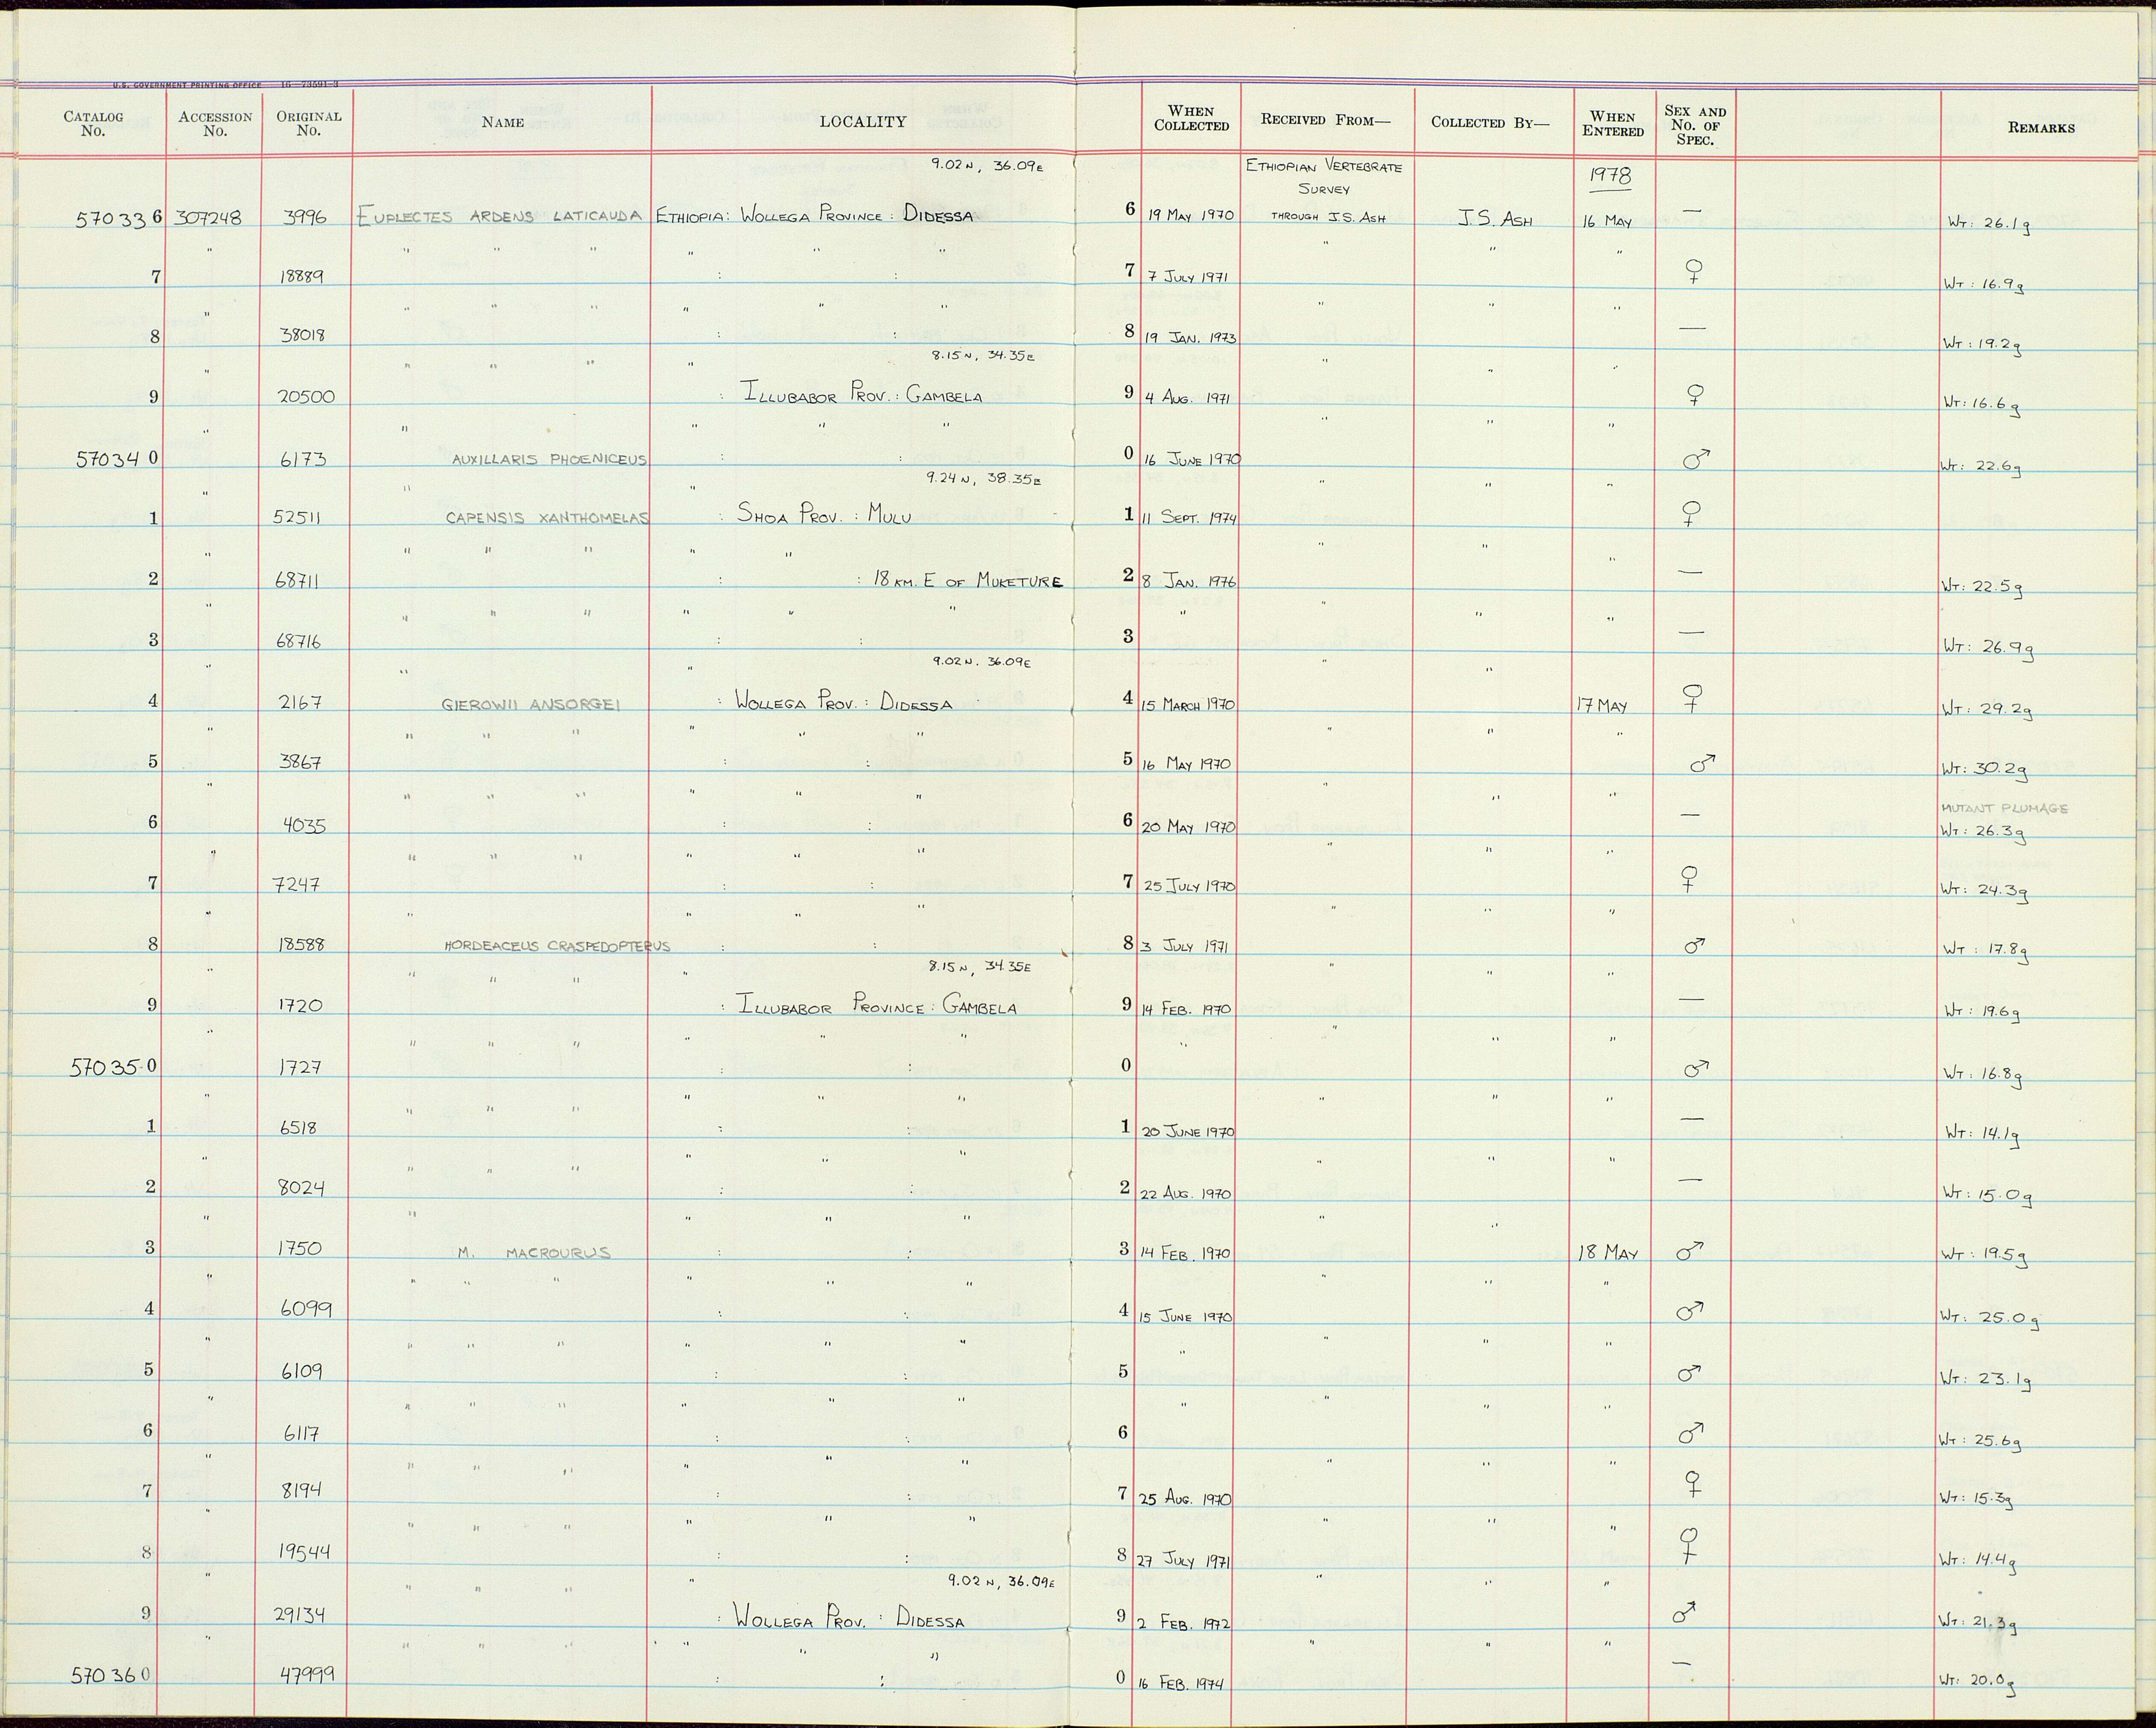 U.S. GOVERNMENT PRINTING OFFICE 16—73591-3
CATALOG No. ACCESSION No. ORIGINAL No. NAME LOCALITY WHEN COLLECTED RECEIVED FROM— COLLECTED BY— WHEN ENTERED SEX AND No. OF SPEC. REMARKS
9.02 N, 36.09 E ETHIOPIAN VERTEBRATE SURVEY 1978
570336 307248 3996 EUPLECTES ARDENS LATICAUDA ETHIOPIA: WOLLEGA PROVINCE : DIDESSA 6 19 MAY 1970 THROUGH J.S. ASH J.S. ASH 16 MAY — WT: 26.1g
" " " " " " " " " "
7 18889 : : 7 7 JULY 1971 ♀ WT: 16.9g
" " " " " " " " " "
8 38018 : : 8 19 JAN. 1973 — WT: 19.2g
" " " " " 8.15 N, 34.35 E " " "
9 20500 : ILLUBABOR PROV. : GAMBELA 9 4 AUG. 1971 ♀ WT: 16.6g
" " " " " " " "
570340 6173 AUXILLARIS PHOENICEUS : : 0 16 JUNE 1970 ♂ WT: 22.6g
" " " 9.24 N, 38.35 E " " "
1 52511 CAPENSIS XANTHOMELAS : SHOA PROV. : MULU 1 11 SEPT. 1974 ♀
" " " " " " " " "
2 68711 : : 18 KM. E OF MUKETURE 2 8 JAN. 1976 — WT: 22.5g
" " " " " " " " " " "
3 68716 : : 3 — WT: 26.9g
" " " 9.02 N. 36.09 E " "
4 2167 GIEROWII ANSORGEI : WOLLEGA PROV. : DIDESSA 4 15 MARCH 1970 17 MAY ♀ WT: 29.2g
" " " " " " " " " "
5 3867 : : 5 16 MAY 1970 ♂ WT: 30.2g
" " " " " " " " " " MUTANT PLUMAGE
6 4035 : : 6 20 MAY 1970 — WT: 26.3g
" " " " " " " " " "
7 7247 : : 7 25 JULY 1970 ♀ WT: 24.3g
" " " " " " " "
8 18588 HORDEACEUS CRASPEDOPTERUS : : 8 3 JULY 1971 ♂ WT: 17.8g
" " " " " 8.15 N, 34.35 E " " "
9 1720 : ILLUBABOR PROVINCE : GAMBELA 9 14 FEB. 1970 — WT: 19.6g
" " " " " " " " " " "
570350 1727 : : 0 ♂ WT: 16.8g
" " " " " " " " " "
1 6518 : : 1 20 JUNE 1970 — WT: 14.1g
" " " " " " " " " "
2 8024 : : 2 22 AUG. 1970 — WT: 15.0g
" " " " " " "
3 1750 M. MACROURUS : : 3 14 FEB. 1970 18 MAY ♂ WT: 19.5g
" " " " " " " " " "
4 6099 : : 4 15 JUNE 1970 ♂ WT: 25.0g
" " " " " " " " " " "
5 6109 : : 5 ♂ WT: 23.1g
" " " " " " " " " " "
6 6117 : : 6 ♂ WT: 25.6g
" " " " " " " " " "
7 8194 : : 7 25 AUG. 1970 ♀ WT: 15.3g
" " " " " " " " " "
8 19544 : : 8 27 JULY 1971 ♀ WT: 14.4g
" " " " " 9.02 N, 36.09 E " " "
9 29134 : WOLLEGA PROV. : DIDESSA 9 2 FEB. 1972 ♂ WT: 21.3g
" " " " " " " " " "
570360 47999 : : 0 16 FEB. 1974 — WT: 20.0g